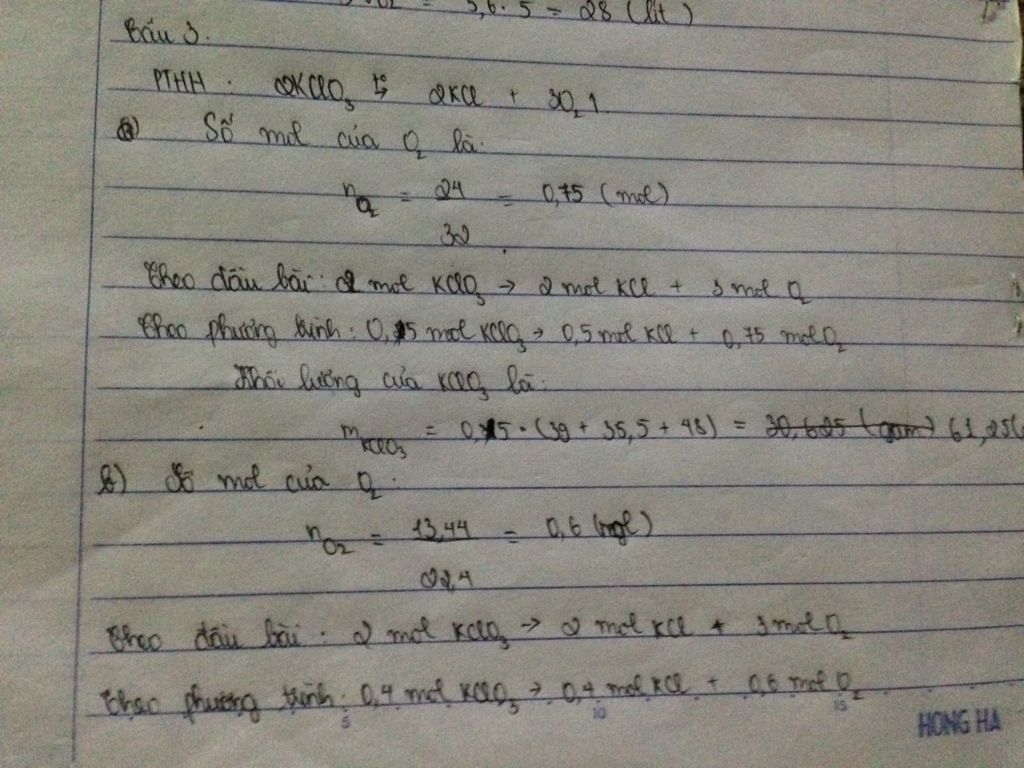 = 5,6 . 5 = 28 (lít)
Bài 3.
PTHH : 2KClO₃ t°→ 2KCl + 3O₂↑
a) Số mol của O₂ là:
nO₂ = 24/32 = 0,75 (mol)
Theo đầu bài : 2 mol KClO₃ → 2 mol KCl + 3 mol O₂
Theo phương trình : 0,5 mol KClO₃ → 0,5 mol KCl + 0,75 mol O₂
Khối lượng của KClO₃ là :
mKClO₃ = 0,5 . (39 + 35,5 + 48) = 30,625 (gam) 61,25(
b) Số mol của O₂ :
nO₂ = 13,44/22,4 = 0,6 (mol)
Theo đầu bài : 2 mol KClO₃ → 2 mol KCl + 3 mol O₂
Theo phương trình : 0,4 mol KClO₃ → 0,4 mol KCl + 0,6 mol O₂
5 10 15
HONG HA